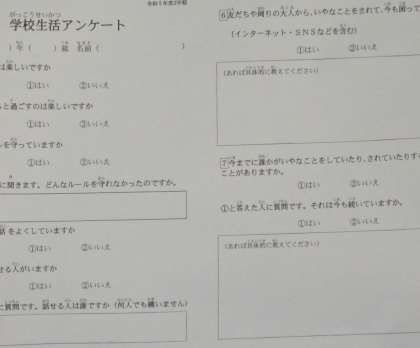 令和5年度2学期
がっこうせいかつ
学校生活アンケート
)年( )組 名前( )
は楽しいですか
①はい ②いいえ
と過ごすのは楽しいですか
①はい ②いいえ
ルを守っていますか
①はい ②いいえ
に聞きます。どんなルールを守れなかったのですか。
話をよくしていますか
①はい ②いいえ
せる人がいますか
①はい ②いいえ
に質問です。話せる人は誰ですか(何人でも構いません)
⑥友だちや周りの大人から、いやなことをされて、今も困って
(インターネット・SNSなどを含む)
①はい ②いいえ
(あれば具体的に教えてください)
⑦今までに誰かがいやなことをしていたり、されていたりす
ことがありますか。
①はい ②いいえ
①と答えた人に質問です。それは今も続いていますか。
①はい ②いいえ
(あれば具体的に教えてください)